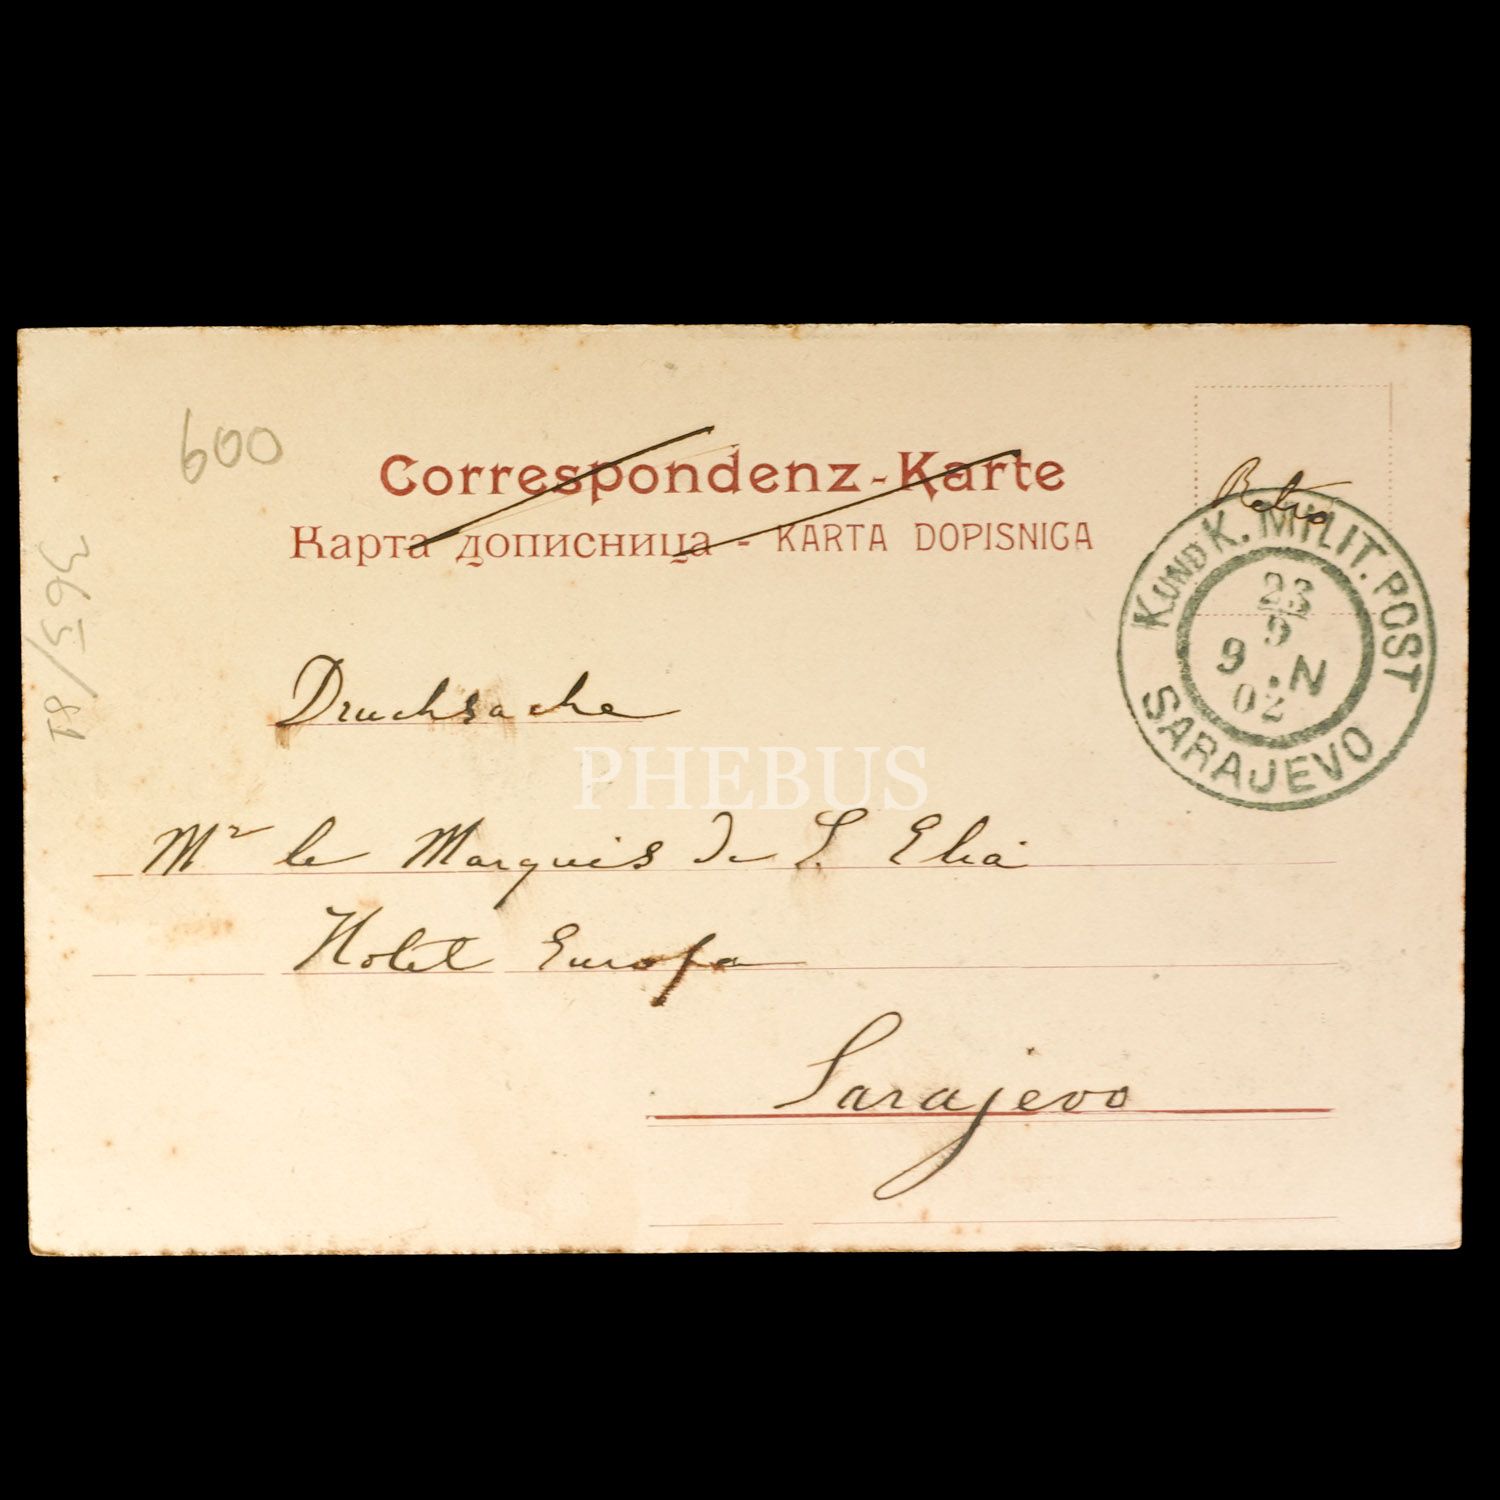 600
Correspondenz-Karte
Карта дописница - KARTA DOPISNICA
Retro
K. UND K. MILIT. POST
23
9
9 . N
02
SARAJEVO
Drucksache
PHEBUS
Mr le Marquis de S. Elia
Hotel Europa
Sarajevo